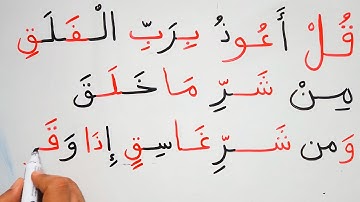 قُلْ أَعُوذُ بِرَبِّ الْفَلَقِ
مِنْ شَرِّ مَا خَلَقَ
وَمن شَرِّ غَاسِقٍ إِذَا وَقَـ